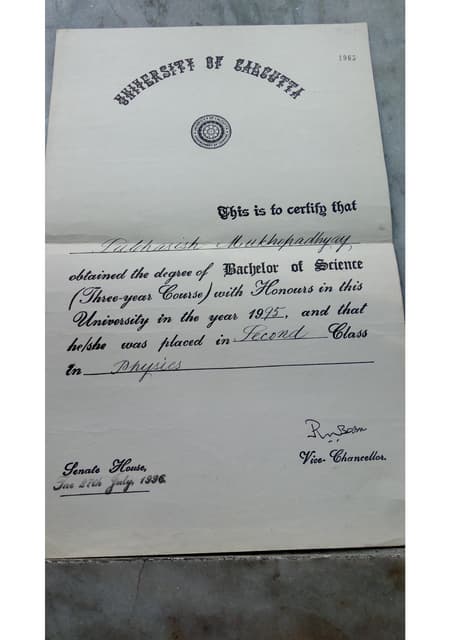 UNIVERSITY OF CALCUTTA
This is to certify that
Mukhopadhyay
obtained the degree of Bachelor of Science
(Three-year Course) with Honours in this
University in the year 1995, and that
he/she was placed in Second Class
in Physics
Vice-Chancellor.
Senate House,
The 27th July, 1996.